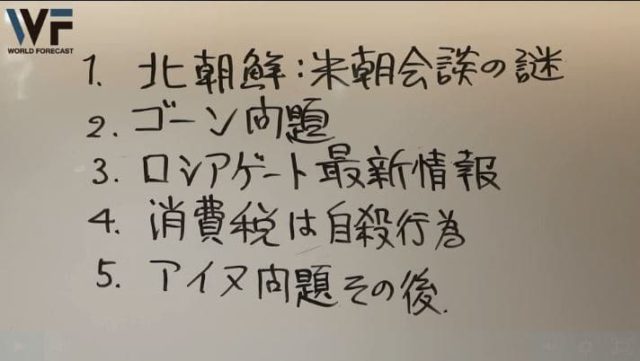 WF
WORLD FORECAST
1. 北朝鮮:米朝会談の謎
2. ゴーン問題
3. ロシアゲート最新情報
4. 消費税は自殺行為
5. アイヌ問題その後.